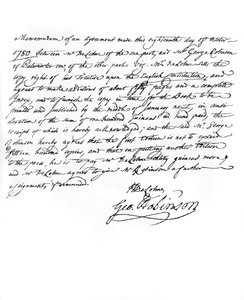 Memorandum of an agreement made this eighteenth day of
1780 Between Mr De Lolme of the one part, and Mr George Robinson
of Paternoster row of the other part Viz. Mr De Lolme sells the
copy right of his treatise upon the English Constitution, and
agrees to make additions of about fifty pages and a complete
Index, and to furnish the copy in time for the Book to be
printed and published by the middle of January next, in consi-
deration of the sum of one hundred guineas in hand paid, the
receipt of which is hereby acknowledged, and the said Mr George
Robinson hereby agrees that the first Edition is not to exceed
fifteen hundred copies, and that on printing another Edition
to the press he is to pay Mr De Lolme thirty guineas more
and Mr De Lolme agrees to give Mr Robinson a further
assignment if demanded.
De Lolme,
Geo. Robinson